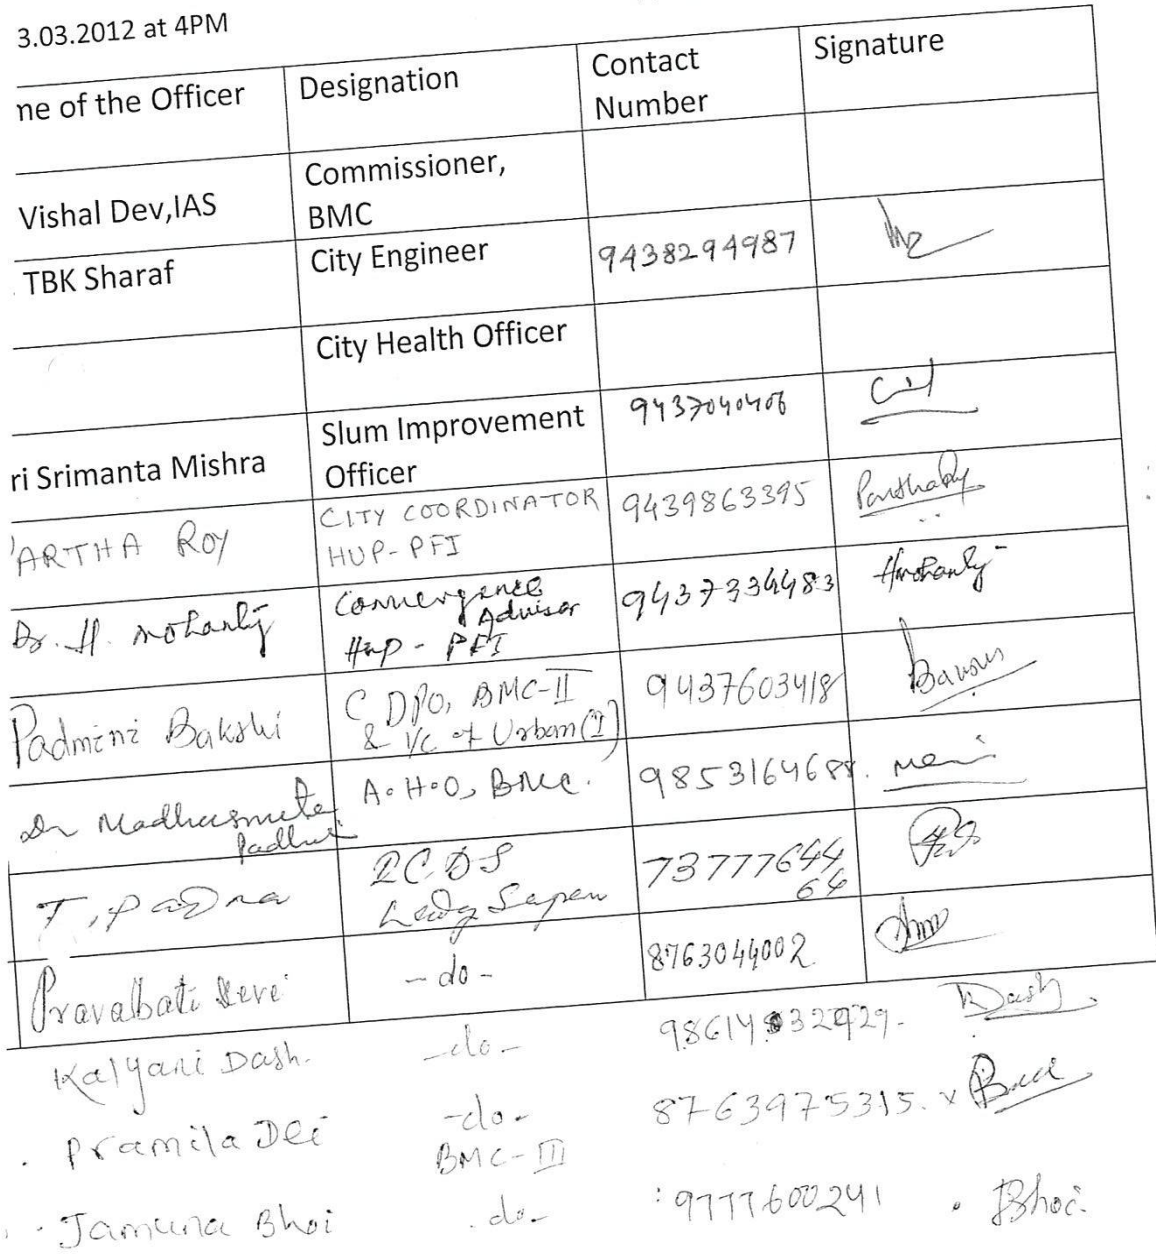 3.03.2012 at 4PM
ne of the Officer Designation Contact Number Signature
Vishal Dev,IAS Commissioner, BMC
TBK Sharaf City Engineer 9438294987
City Health Officer
ri Srimanta Mishra Slum Improvement Officer 9437040406
ARTHA ROY CITY COORDINATOR HUP-PFI 9439863395
Dr. H. Mohanty Convergence Advisor Hup - PFI 9437334483 Hmohanty
Padmini Bakshi CDPO, BMC-II & I/C of Urban (I) 9437603418
Dr Madhusmita Padhi A.H.O, BMC. 9853164688.
T. Padma ICDS Lady Super 7377764464
Pravalbati Devi -do- 8763044002
Kalyani Dash. -do- KDash
Pramila Dei -do- BMC-III 8763975315. x
Jamuna Bhoi -do- 9777600241 JBhoi.